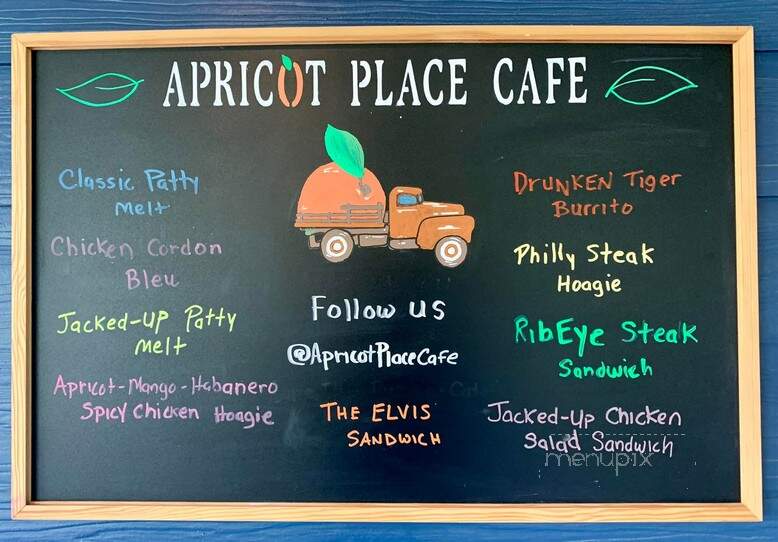 APRICOT PLACE CAFE
Classic Patty
Melt
Chicken Cordon
Bleu
Jacked-UP Patty
melt
Apricot-Mango-Habanero
Spicy Chicken Hoagie
Follow us
@ApricotPlaceCafe
THE ELVIS
SANDWICH
DRUNKEN Tiger
Burrito
Philly Steak
Hoagie
RibEye Steak
Sandwich
Jacked-Up Chicken
Salad Sandwich
menupix